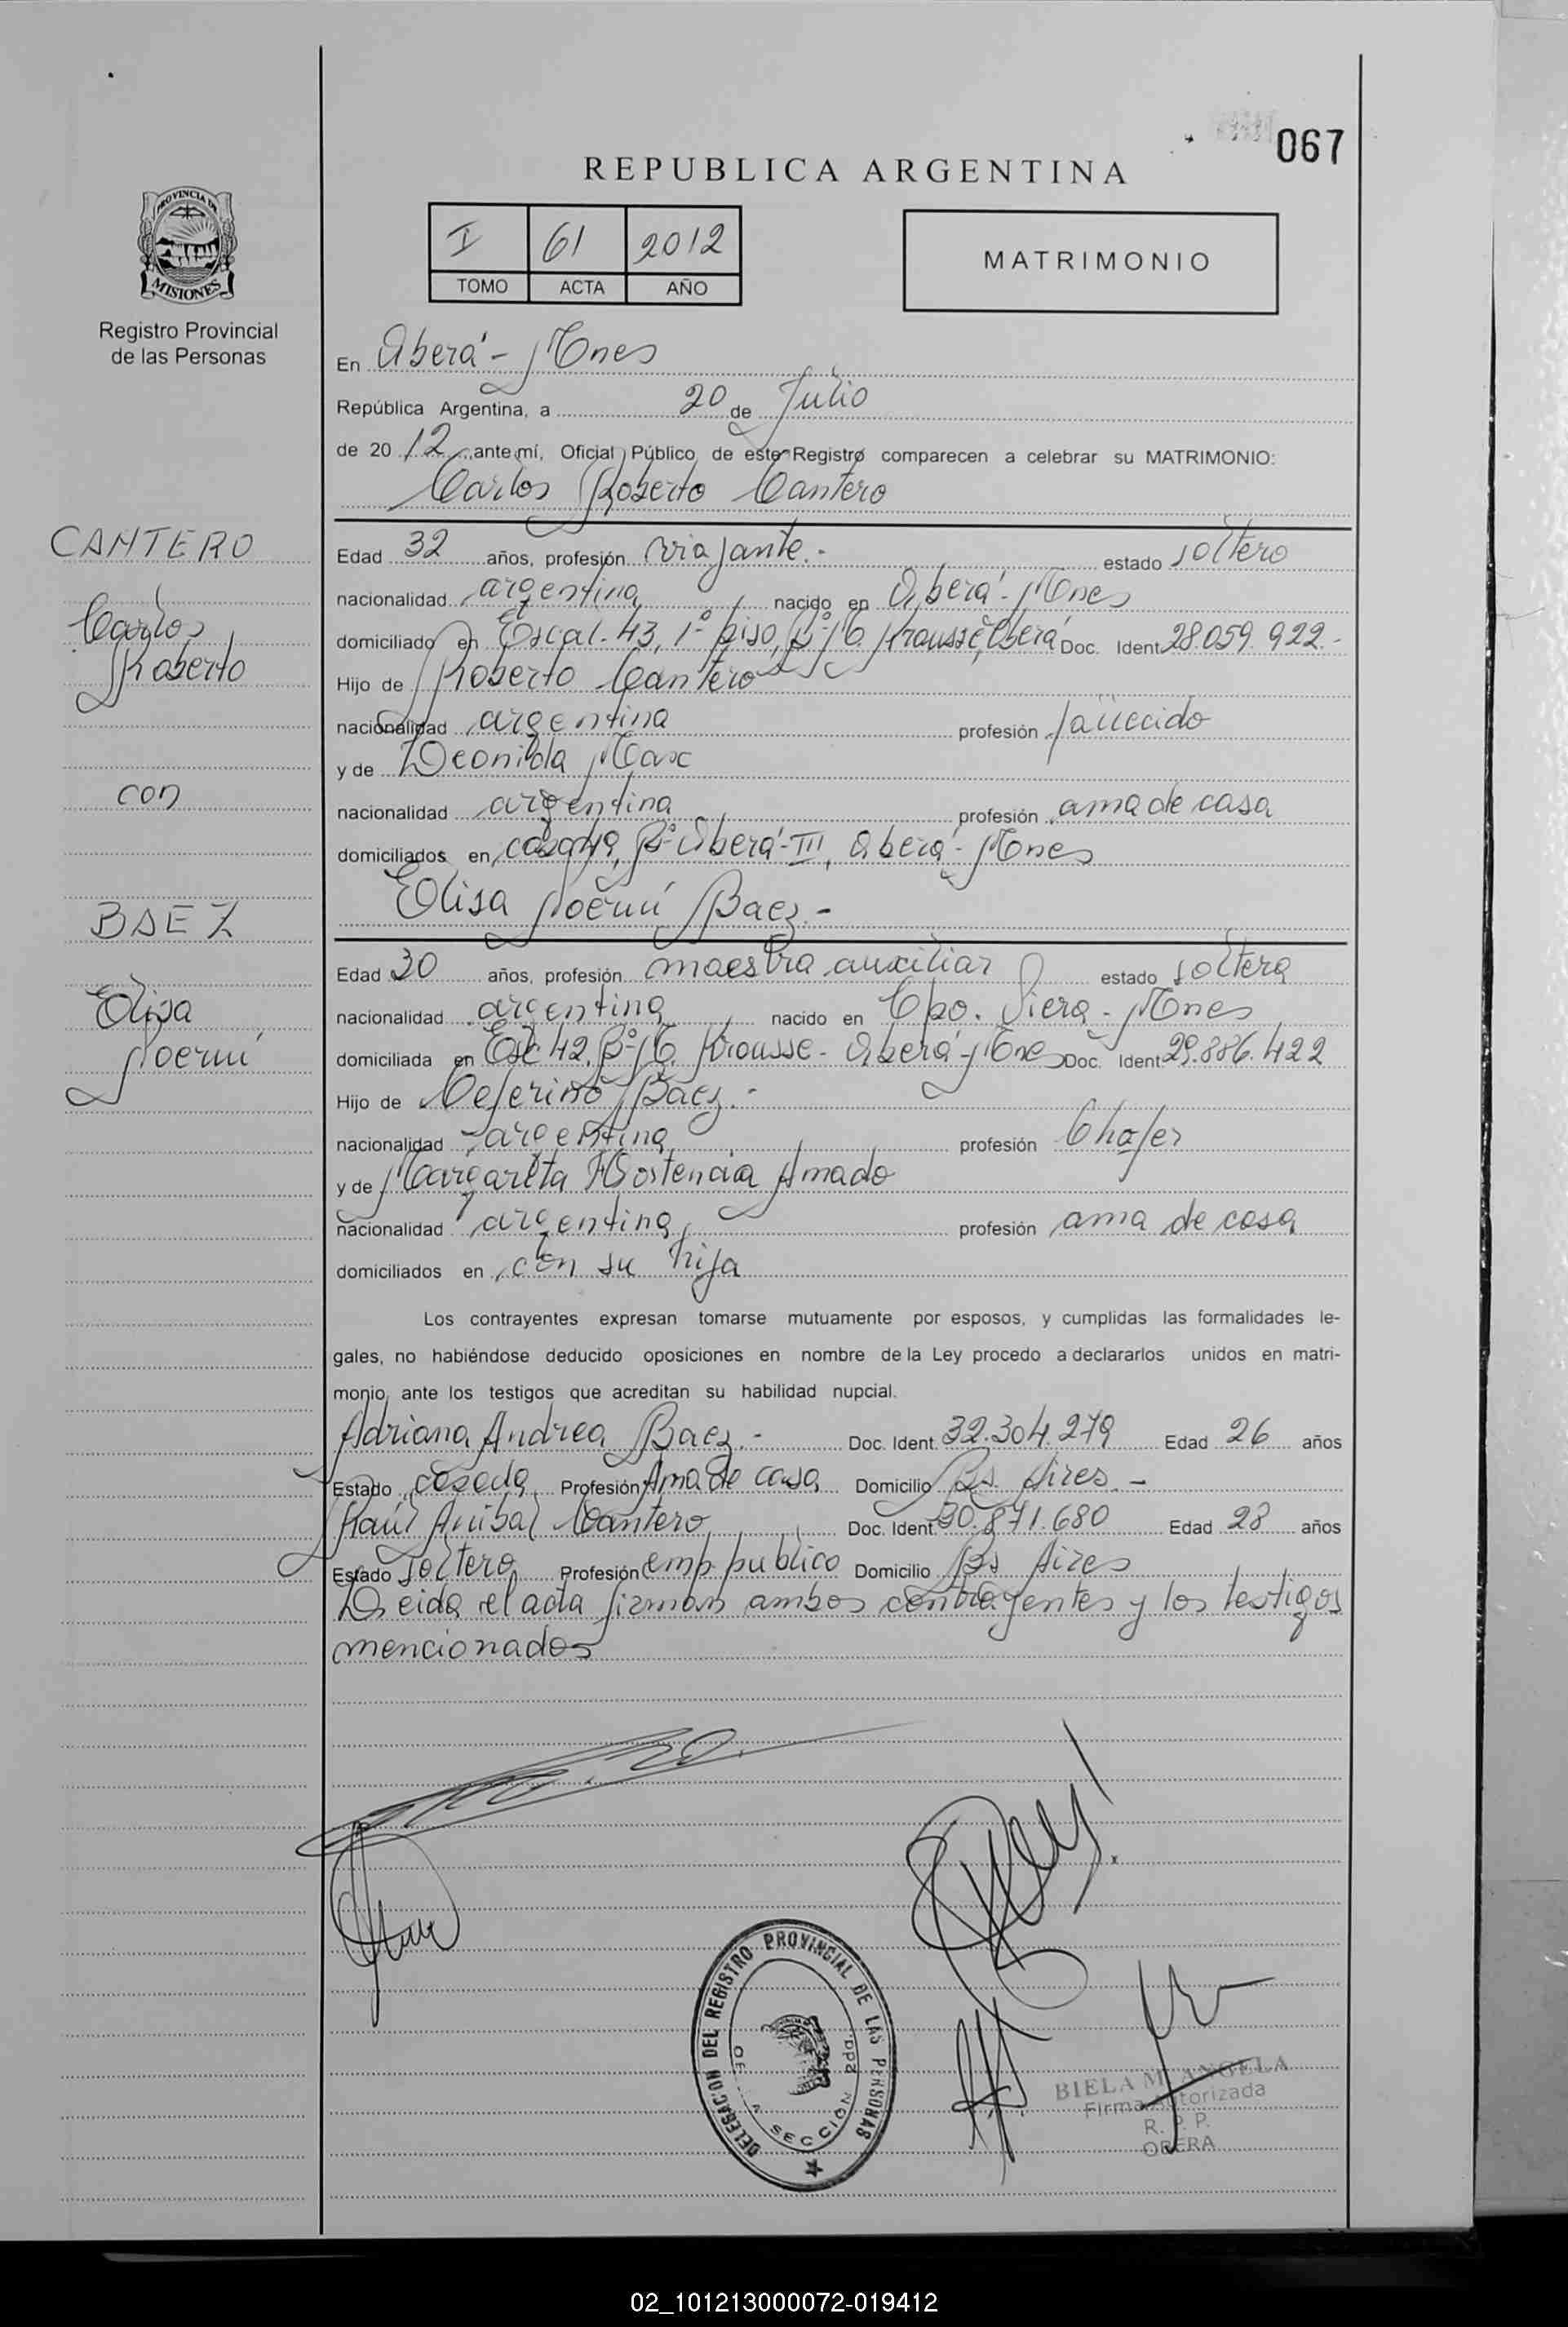 067
REPUBLICA ARGENTINA
PROVINCIA DE
MISIONES
Registro Provincial
de las Personas
I 61 2012
TOMO ACTA AÑO
MATRIMONIO
En Oberá - Mnes
República Argentina, a 20 de Julio
de 20 12 ante mí, Oficial Público de este Registro comparecen a celebrar su MATRIMONIO:
Carlos Roberto Cantero
CANTERO
Carlos
Roberto
con
BAEZ
Elisa
Noemí
Edad 32 años, profesión viajante.- estado soltero
nacionalidad argentina nacido en Oberá - Mnes
domiciliado en Escal. 43, 1º piso, Bº M. Krausse, Oberá Doc. Ident. 28.059.922.-
Hijo de Roberto Cantero
nacionalidad argentina profesión fallecido
y de Leonilda Marx
nacionalidad argentina profesión ama de casa
domiciliados en casa 49, Bº Oberá-III, Oberá - Mnes
Elisa Noemí Baez.-
Edad 30 años, profesión maestra auxiliar estado soltera
nacionalidad argentina nacido en Cpo. Viera - Mnes
domiciliada en Esc 42, Bº M. Krousse - Oberá Mnes Doc. Ident. 29.886.422
Hijo de Ceferino Baez.-
nacionalidad argentina profesión Chofer
y de Margarita Hortencia Amado
nacionalidad argentina profesión ama de casa
domiciliados en con su hija
Los contrayentes expresan tomarse mutuamente por esposos, y cumplidas las formalidades le-
gales, no habiéndose deducido oposiciones en nombre de la Ley procedo a declararlos unidos en matri-
monio, ante los testigos que acreditan su habilidad nupcial.
Adriana Andrea Baez.- Doc. Ident. 32.304.279 Edad 26 años
Estado casada Profesión Ama de casa Domicilio Bs. Aires.-
Raúl Anibal Cantero Doc. Ident. 30.871.680 Edad 28 años
Estado soltero Profesión emp. publico Domicilio Bs Aires
Leida el acta firman ambos contrayentes y los testigos
mencionados
DELEGACION DEL REGISTRO PROVINCIAL DE LAS PERSONAS
SECCION
BIELA M. ANGELA
Firma Autorizada
R. P. P.
OBERA
02_101213000072-019412